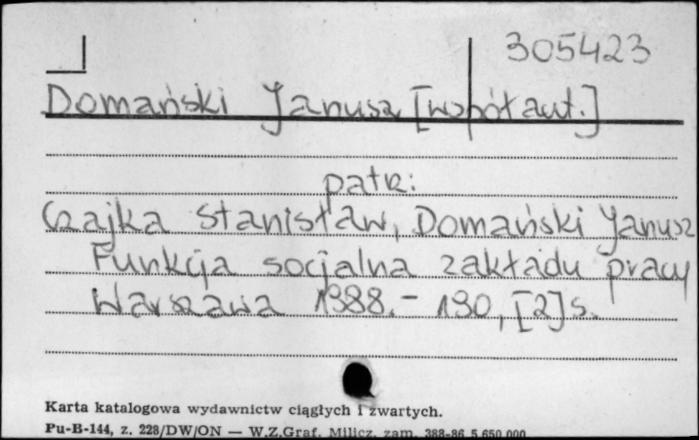 305423
Domański Janusz [współaut.]
patrz:
Czajka Stanisław, Domański Janusz
Funkcja socjalna zakładu pracy
Warszawa 1988.- 190, [2] s.
Karta katalogowa wydawnictw ciągłych i zwartych.
Pu-B-144, z. 228/DW/ON — W.Z.Graf. Milicz, zam. 388-86 5 650 000